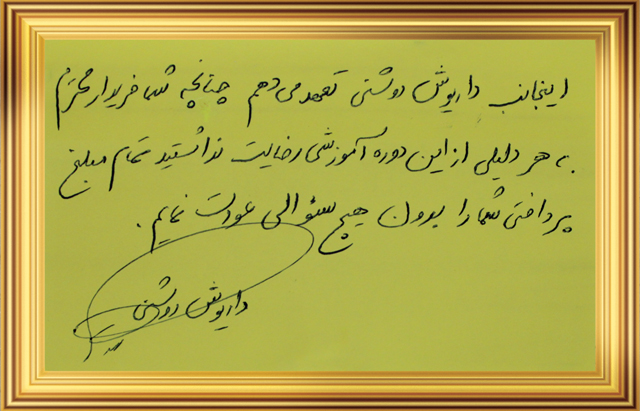 اینجانب داریوش روشنی تعهد می دهم چنانچه شما خریدار محترم
به هر دلیلی از این دوره آموزشی رضایت نداشتید تمام مبلغ
پرداختی شما را بدون هیچ سئوالی عودت نمایم.
داریوش روشنی